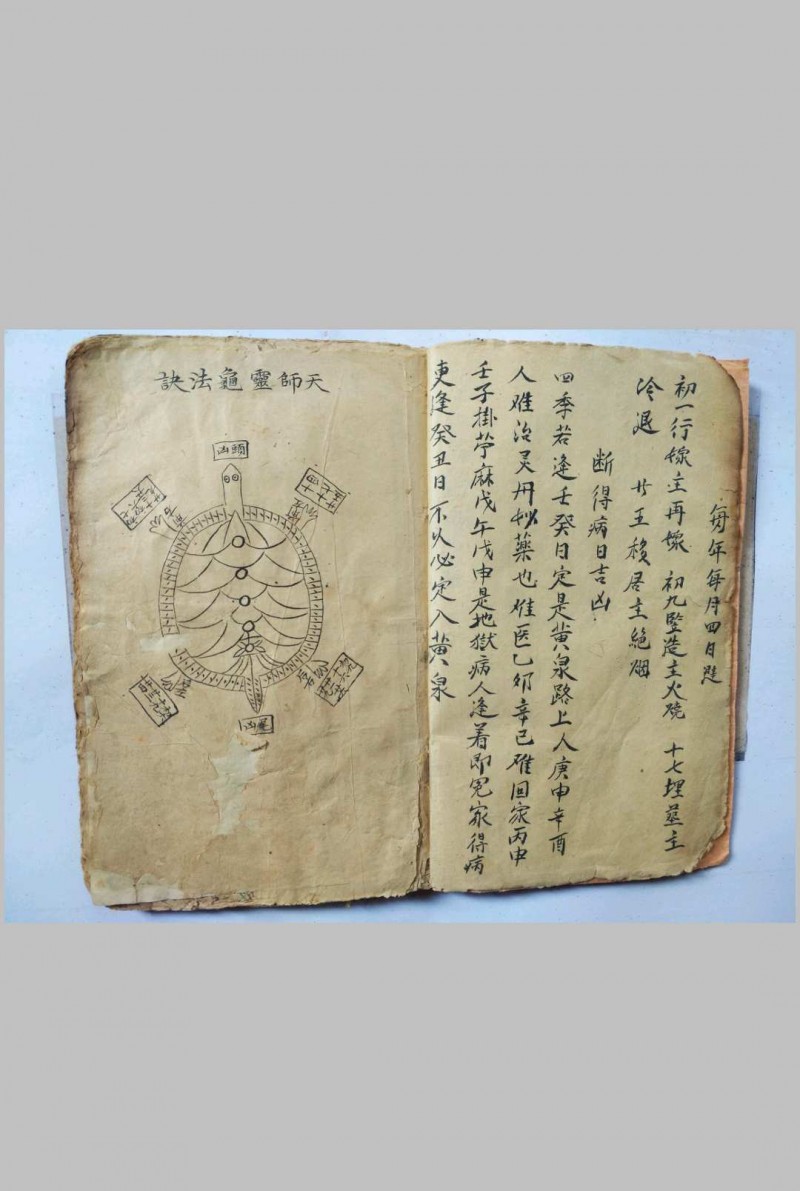 每年每月四日是
初一行嫁主再嫁 初九竪造主火燒 十七埋塟主
冷退 廿五移居主絶烟
断得病日吉凶
四季若逢壬癸日定是黄泉路上人庚申辛酉
人难治灵丹妙藥也难医乙卯辛巳难回家丙申
壬子掛苧麻戊午戊申是地獄病人逢着即冤家得病
更逢癸丑日不久必定入黄泉
天師靈龜法訣
頭凶
尾凶